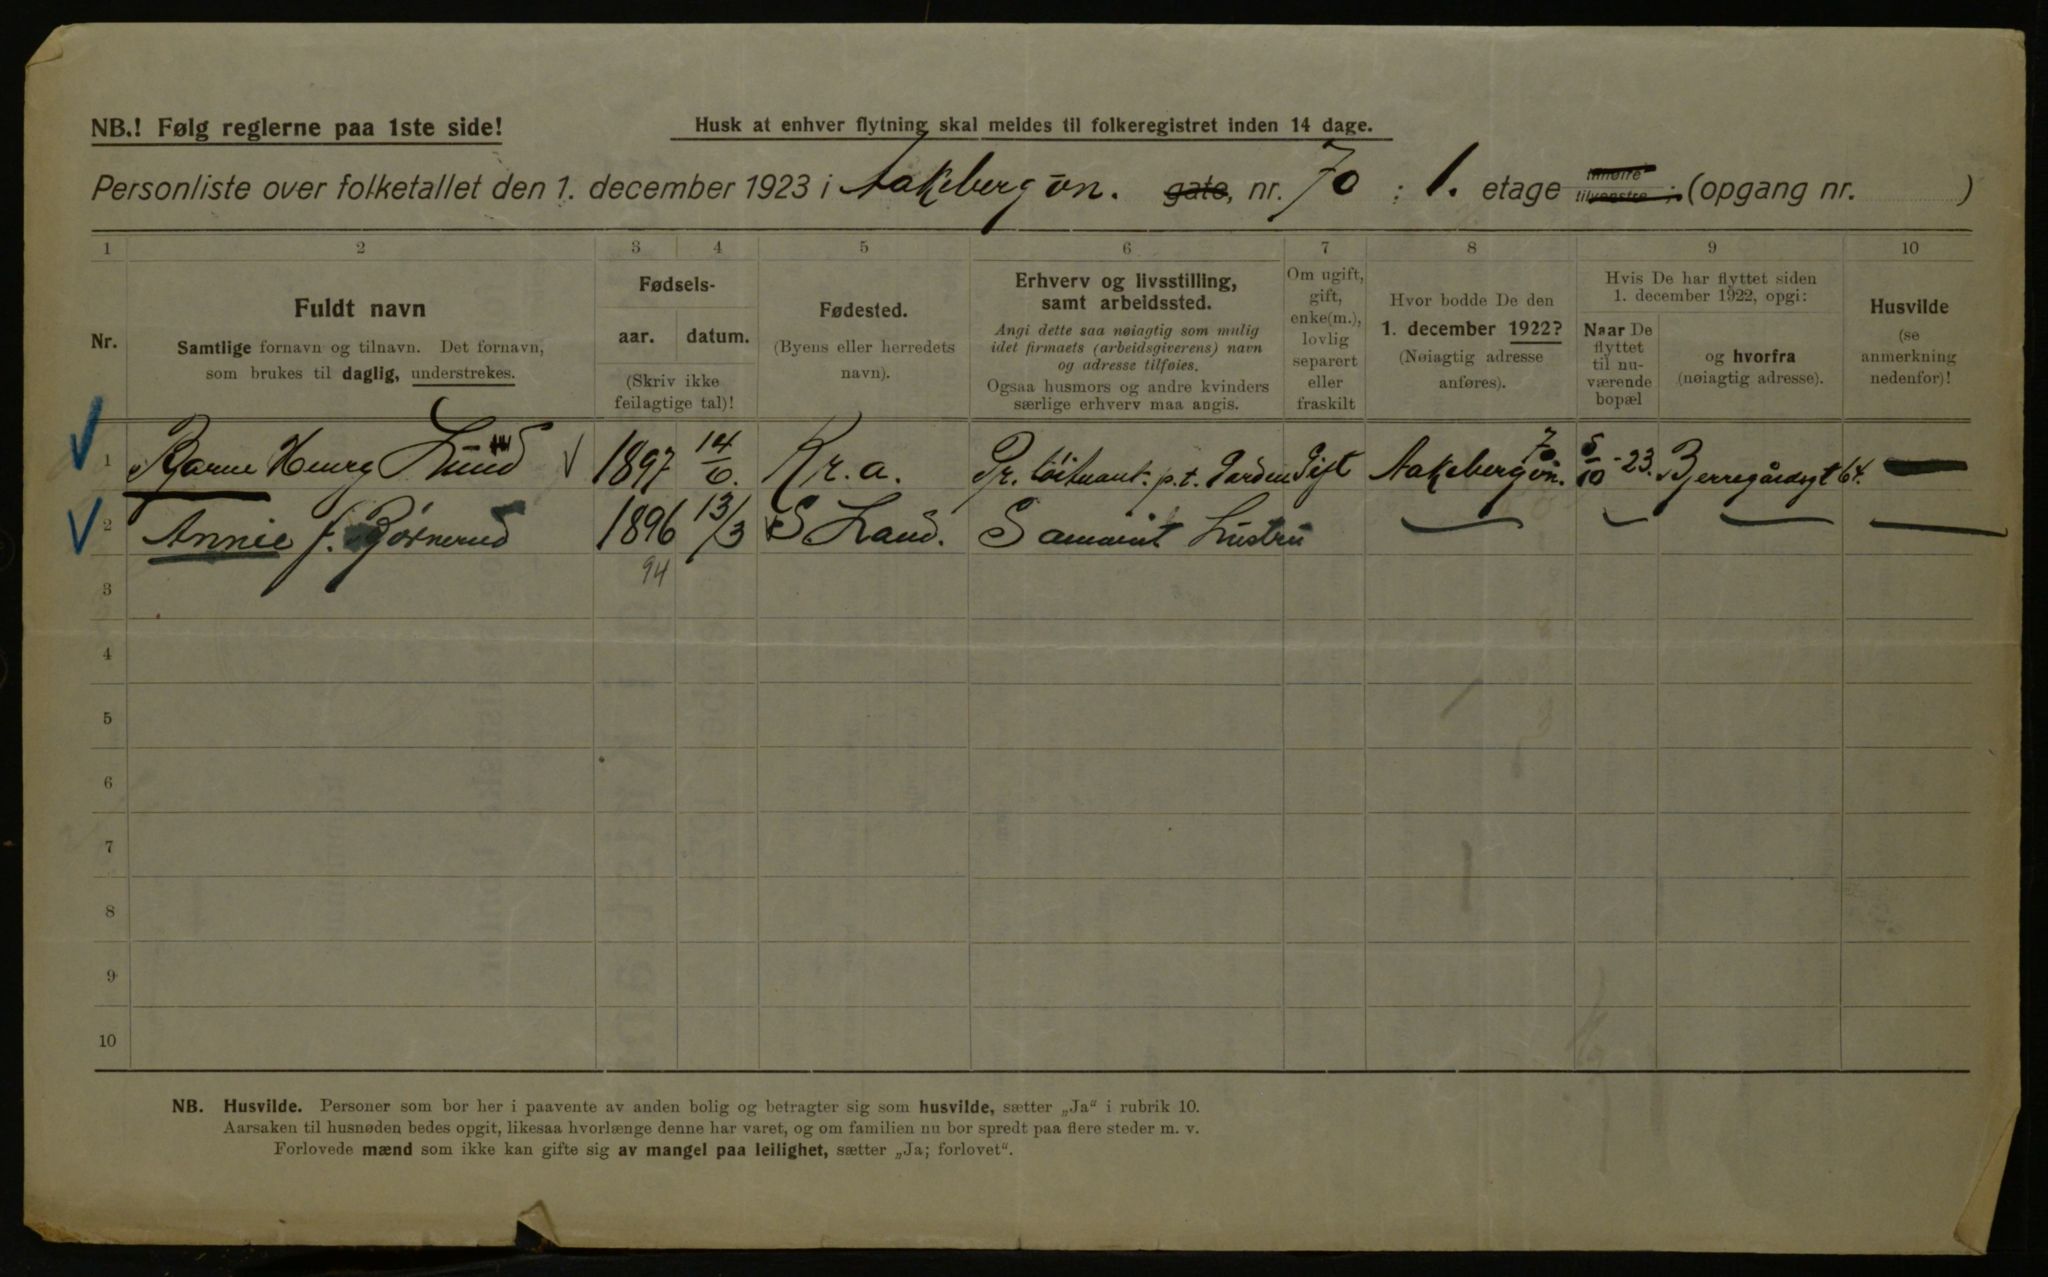 NB.! Følg reglerne paa 1ste side!
Husk at enhver flytning skal meldes til folkeregistret inden 14 dage.
Personliste over folketallet den 1. december 1923 i Aakebergvn. gate, nr. 70 ; 1. etage tilhøire tilvenstre ; (opgang nr. )
1 2 3 4 5 6 7 8 9 10
Nr.
Fuldt navn
Samtlige fornavn og tilnavn. Det fornavn,
som brukes til daglig, understrekes.
Fødsels-
aar. datum.
(Skriv ikke
feilagtige tal)!
Fødested.
(Byens eller herredets
navn).
Erhverv og livsstilling,
samt arbeidssted.
Angi dette saa nøiagtig som mulig
idet firmaets (arbeidsgiverens) navn
og adresse tilføies.
Ogsaa husmors og andre kvinders
særlige erhverv maa angis.
Om ugift,
gift,
enke(m.),
lovlig
separert
eller
fraskilt
Hvor bodde De den
1. december 1922?
(Nøiagtig adresse
anføres).
Hvis De har flyttet siden
1. december 1922, opgi:
Naar De
flyttet
til nu-
værende
bopæl
og hvorfra
(nøiagtig adresse).
Husvilde
(se
anmerkning
nedenfor)!
1 Bjarne Henry Lund 1897 14/6. Kr.a. Pr. løitnant p.t. Garden Gift Aakebergvn. 70 5/10-23. Bjerregårdsgt 64. —
2 Annie f. Bjørnerud 1896 13/3 S Land. Hustru — — — —
94
3
4
5
6
7
8
9
10
NB. Husvilde. Personer som bor her i paavente av anden bolig og betragter sig som husvilde, sætter „Ja“ i rubrik 10.
Aarsaken til husnøden bedes opgit, likesaa hvorlænge denne har varet, og om familien nu bor spredt paa flere steder m. v.
Forlovede mænd som ikke kan gifte sig av mangel paa leilighet, sætter „Ja; forlovet“.